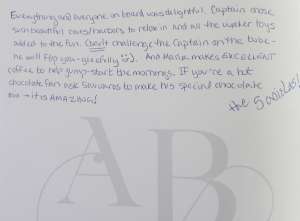 Everything and everyone on board was delightful. Captain chose
such beautiful caves/harbors to relax in and all the water toys
added to the fun. Don't challenge the Captain on the tube-
he will flip you - gleefully :). And Maria makes EXCELLENT
coffee to help jump-start the mornings. If you're a hot
chocolate fan ask to make his special chocolate
too - it is AMAZING!
the 5
AB